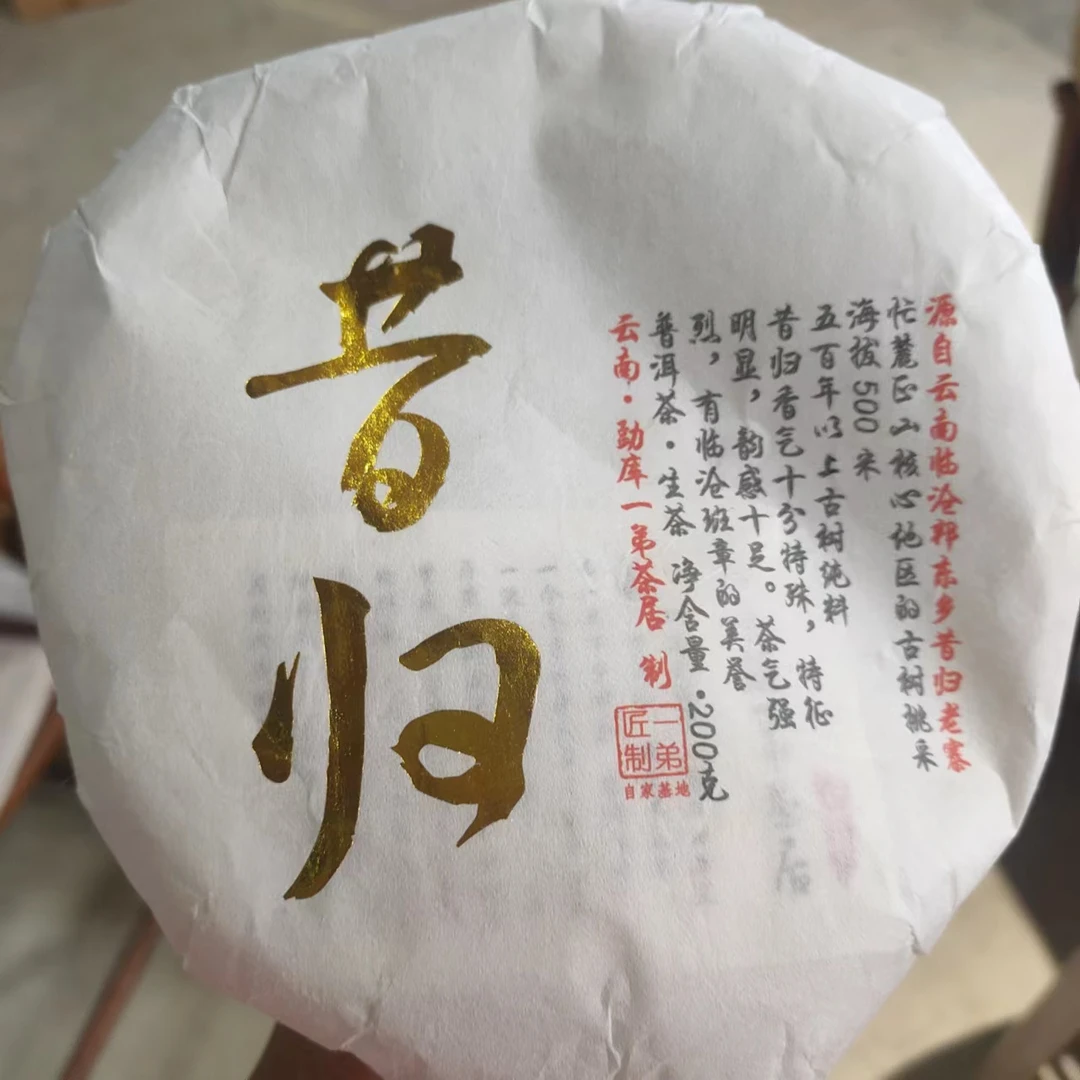 昔归
源自云南临沧邦东乡昔归老寨
忙麓正山核心地区的古树桃采
海拔500米
五百年以上古树纯料
昔归香气十分特殊，特征
明显，韵感十足。茶气强
烈，有临沧班章的美誉
普洱茶·生茶 净含量·200克
云南·勐库一弟茶居 制
一弟
匠制
自家基地